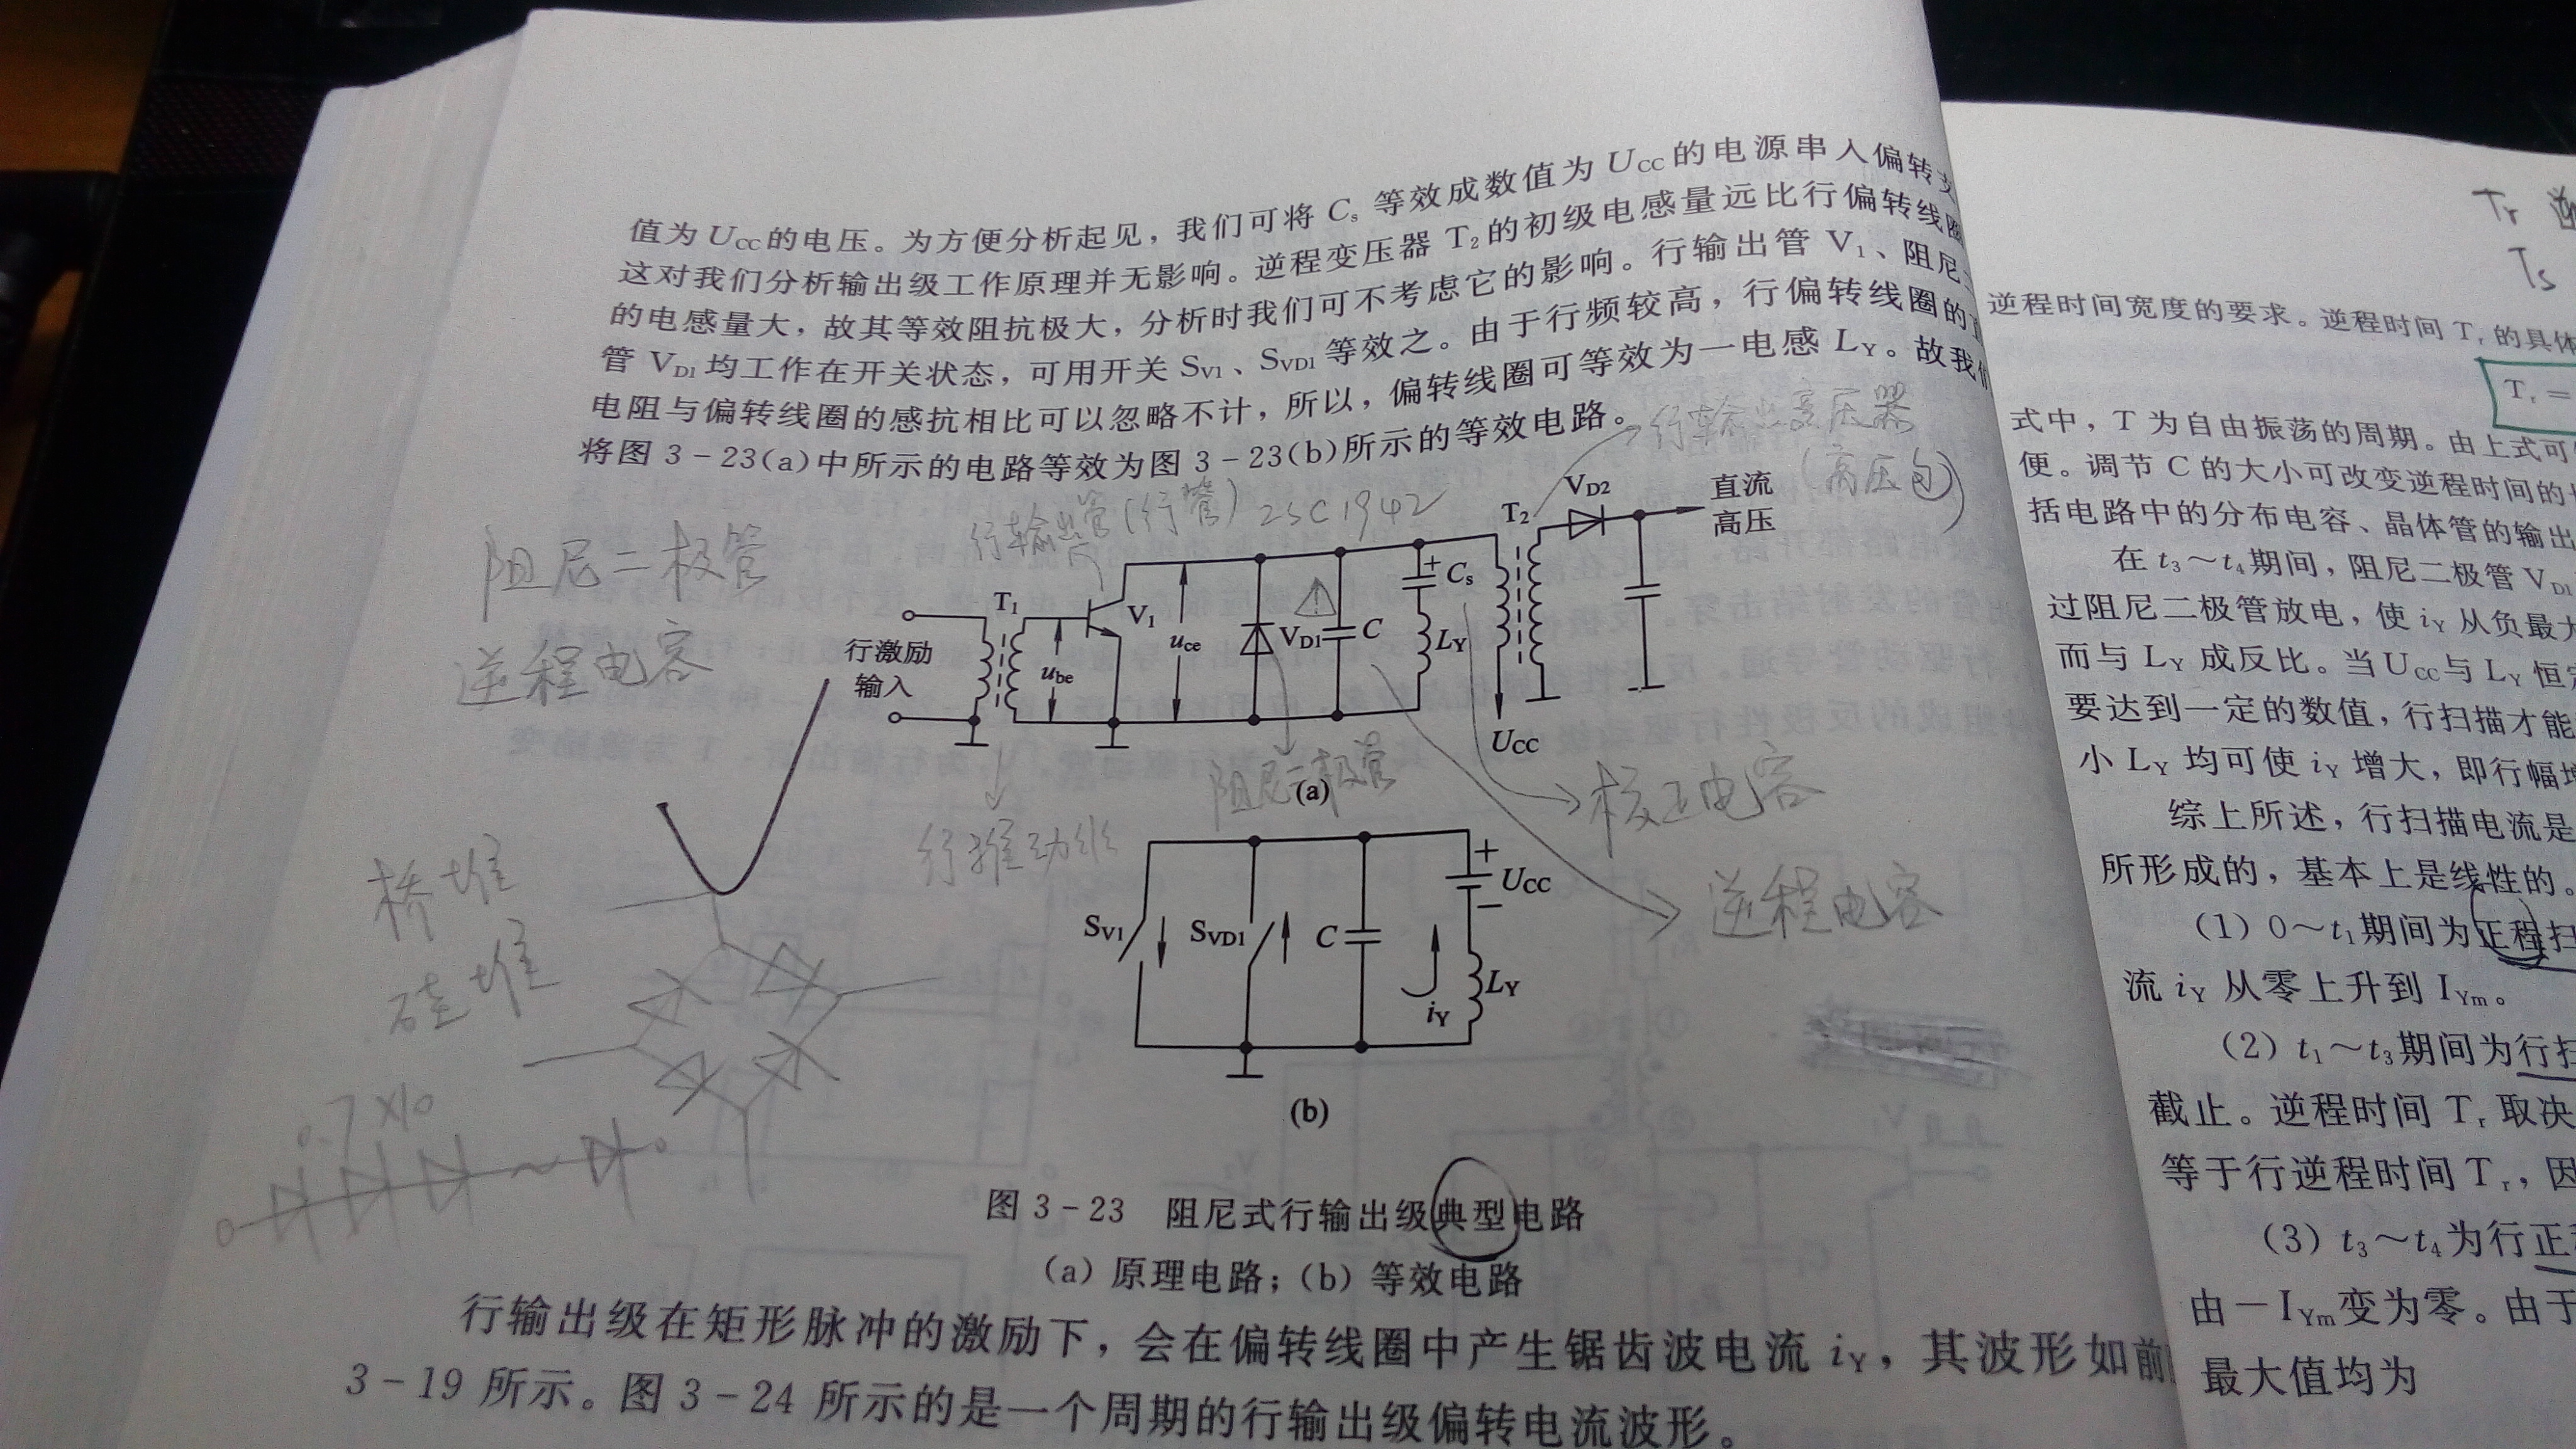 值为 UCC的电压。为方便分析起见，我们可将 Cs 等效成数值为 UCC的电源串入偏转
这对我们分析输出级工作原理并无影响。逆程变压器 T2的初级电感量远比行偏转线圈
的电感量大，故其等效阻抗极大，分析时我们可不考虑它的影响。行输出管 V1、阻尼
管 VD1均工作在开关状态，可用开关 SV1、SVD1等效之。由于行频较高，行偏转线圈的
电阻与偏转线圈的感抗相比可以忽略不计，所以，偏转线圈可等效为一电感 LY。故我们
将图 3-23(a)中所示的电路等效为图 3-23(b)所示的等效电路。
行输出变压器
(高压包)
行输出管(行管) 2SC1942
阻尼二极管
逆程电容
T1
V1
行激励
输入
ube
uce
VD1
C
Cs
LY
T2
VD2
直流
高压
UCC
(a)
阻尼二极管
校正电容
逆程电容
桥堆
硅堆
0.7×10
SV1
SVD1
C
UCC
LY
iY
(b)
图 3-23 阻尼式行输出级典型电路
(a) 原理电路；(b) 等效电路
行输出级在矩形脉冲的激励下，会在偏转线圈中产生锯齿波电流 iY，其波形如前
3-19 所示。图 3-24 所示的是一个周期的行输出级偏转电流波形。
Tr 逆
Ts
逆程时间宽度的要求。逆程时间 Tr的具体
Tr =
式中，T 为自由振荡的周期。由上式可
便。调节 C 的大小可改变逆程时间的
括电路中的分布电容、晶体管的输出
在 t3～t4期间，阻尼二极管 VD1
过阻尼二极管放电，使 iY 从负最大
而与 LY 成反比。当UCC与 LY 恒定
要达到一定的数值，行扫描才能
小 LY 均可使 iY 增大，即行幅增
综上所述，行扫描电流是
所形成的，基本上是线性的。
(1) 0～t1期间为正程扫
流 iY 从零上升到 IYm。
(2) t1～t3期间为行扫
截止。逆程时间 Tr 取决
等于行逆程时间 Tr，因
(3) t3～t4为行正
由－IYm变为零。由于
最大值均为